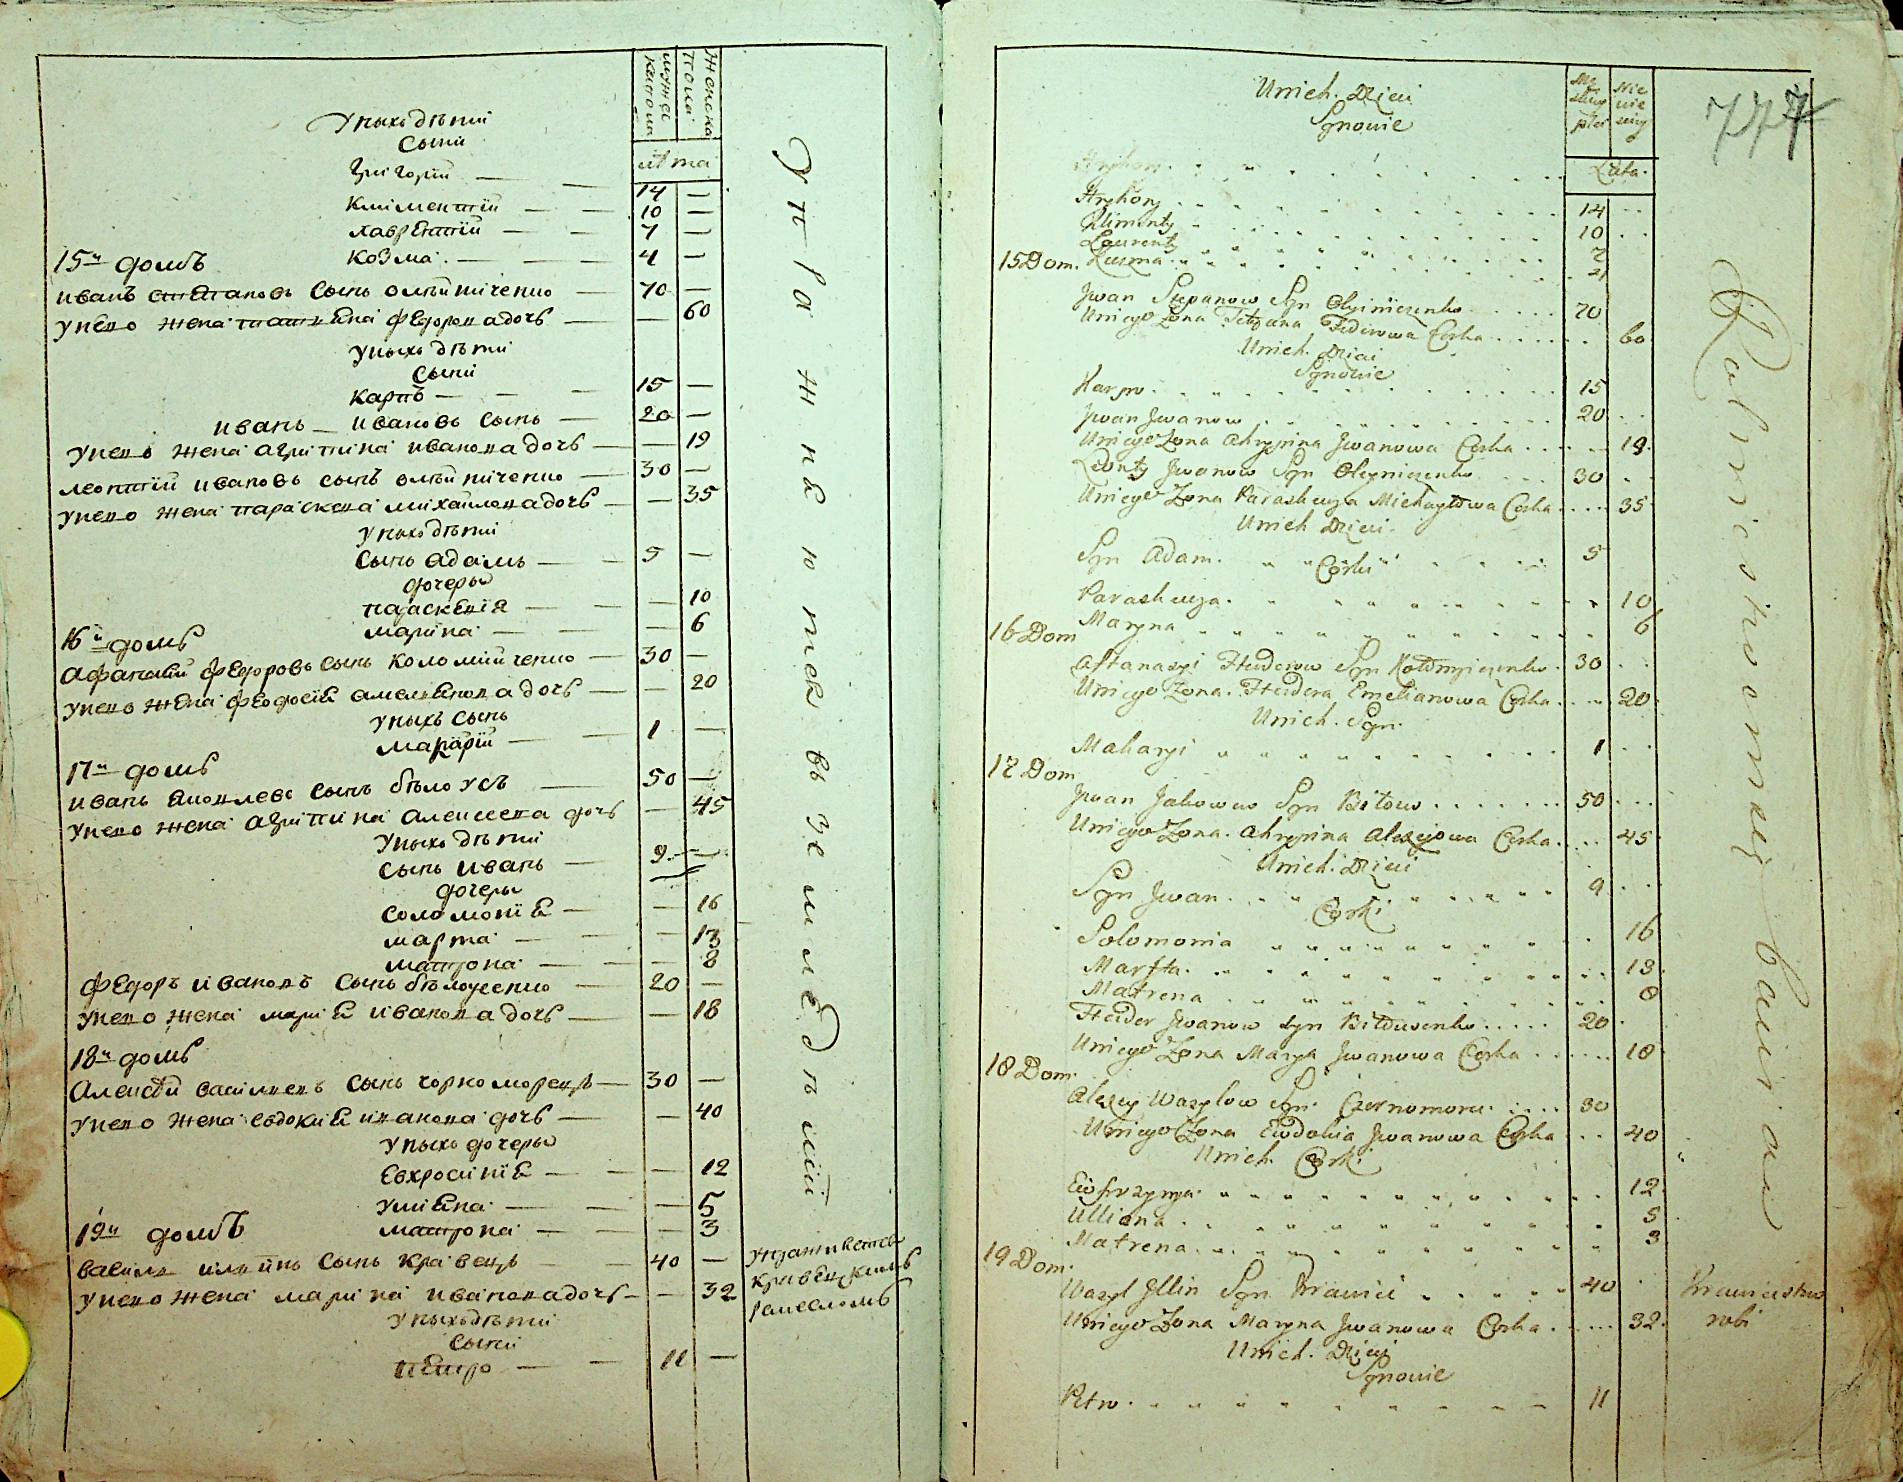 мужеска пола
женска пола
лѣта
Уныхъ дѣти
сыны
Григорїй 14 —
Климентїй 10 —
Лаврентїй 7 —
15й домъ
Козма 4 —
иванъ степановъ сынъ олейниченко 70 —
унего жена татіена федорова дочь — 60
уныхъ дѣти
сыны
карпъ 15 —
иванъ ивановъ сынъ 20 —
унего жена агрипина иванова дочь — 19
леонтїй ивановъ сынъ олейниченко 30 —
унего жена параскева михаилова дочь — 35
уныхъ дѣти
сынъ адамъ 5 —
дочеры
параскевїя — 10
марина — 6
16й домъ
афанасїй федоровъ сынъ коломийченко 30 —
унего жена феодосїя емельянова дочь — 20
уныхъ сынъ
макарїй 1 —
17й домъ
иванъ яковлевъ сынъ бѣлоусъ 50 —
унего жена агрипина алексеева дочь — 45
уныхъ дѣти
сынъ иванъ 9 —
дочеры
соломонїя — 16
марта — 13
матрона — 8
федоръ ивановъ сынъ бѣлоусенко 20 —
унего жена марїя иванова дочь — 18
18й домъ
алексѣй васильевъ сынъ чорноморецъ 30 —
унего жена евдокия иванова дочь — 40
уныхъ дочеры
евхросинїя — 12
улияна — 5
19й домъ
матрона — 3
василь ильинъ сынъ кравецъ 40 —
унего жена марина иванова дочь — 32
уныхъ дѣти
сыны
петро 11 —
упражняются въ земледѣлїи
кравецкимъ
ремесломъ
777
Unich. Dzieci
Synowie
Lata.
Hryhory
Hryhory 14
Klimenty 10
Laurenty 7
15 Dom. Kuzma 4
Jwan Stepanow Syn Oleyniczenko 70
Uniego Zona Tetyana Fedorowa Corka 60
Unich. Dzieci
Synowie
Karpo 15
Jwan Jwanow 20
Uniego Zona Ahrypina Jwanowa Corka 19
Leonty Jwanow Syn Oleyniczenko 30
Uniego Zona Paraskewya Michayłowa Corka 35
Unich Dzieci.
Syn Adam. 5
Corki
Paraskewya 10
Maryna 6
16 Dom
Aftanazyi Fheodorow Syn Kołomyiczenko 30
Uniego Zona. Emelianowa Corka 20
Unich. Syn.
Makaryi 1
17 Dom
Jwan Jakowow Syn Biłous 50
Uniego Zona. Ahrypina Alexejowa Corka 45
Unich. Dzieci
Syn Jwan. 9
Corki
Solomonia 16
Marfta. 13
Matrena 8
Fheder Jwanow Syn Biłousenko 20
Uniego Zona Marya Jwanowa Corka 18
18 Dom.
Alexey Wasylow Syn. Czernomorec 30
Uniego Zona Ewdokia Jwanowa Corka 40
Unich. Corki
Eufrozynya 12
Ulliana 5
Matrena 3
19 Dom.
Wasyl Jllin Syn Krawiec 40
Uniego Zona Maryna Jwanowa Corka 32
Unich. Dzieci
Synowie
Petro 11
Rolnictwom bawia
Krawiectwo
robi